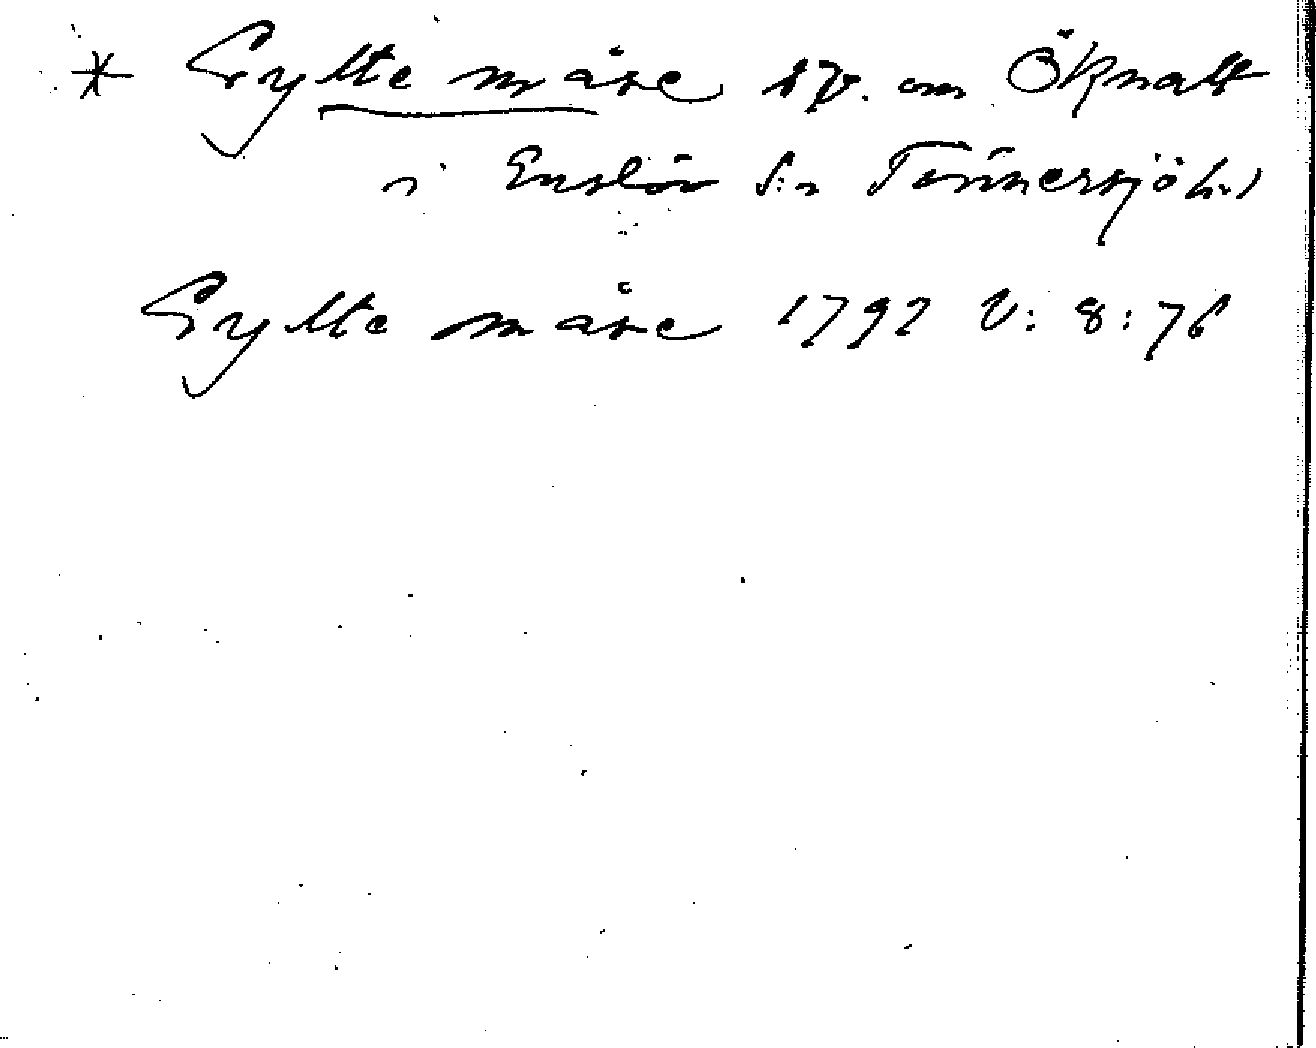 * Gylte måse sp. om Öknalt
i Enslöv S:n Tönnersjö h.d
Gylte måse 1792 V: 8:76